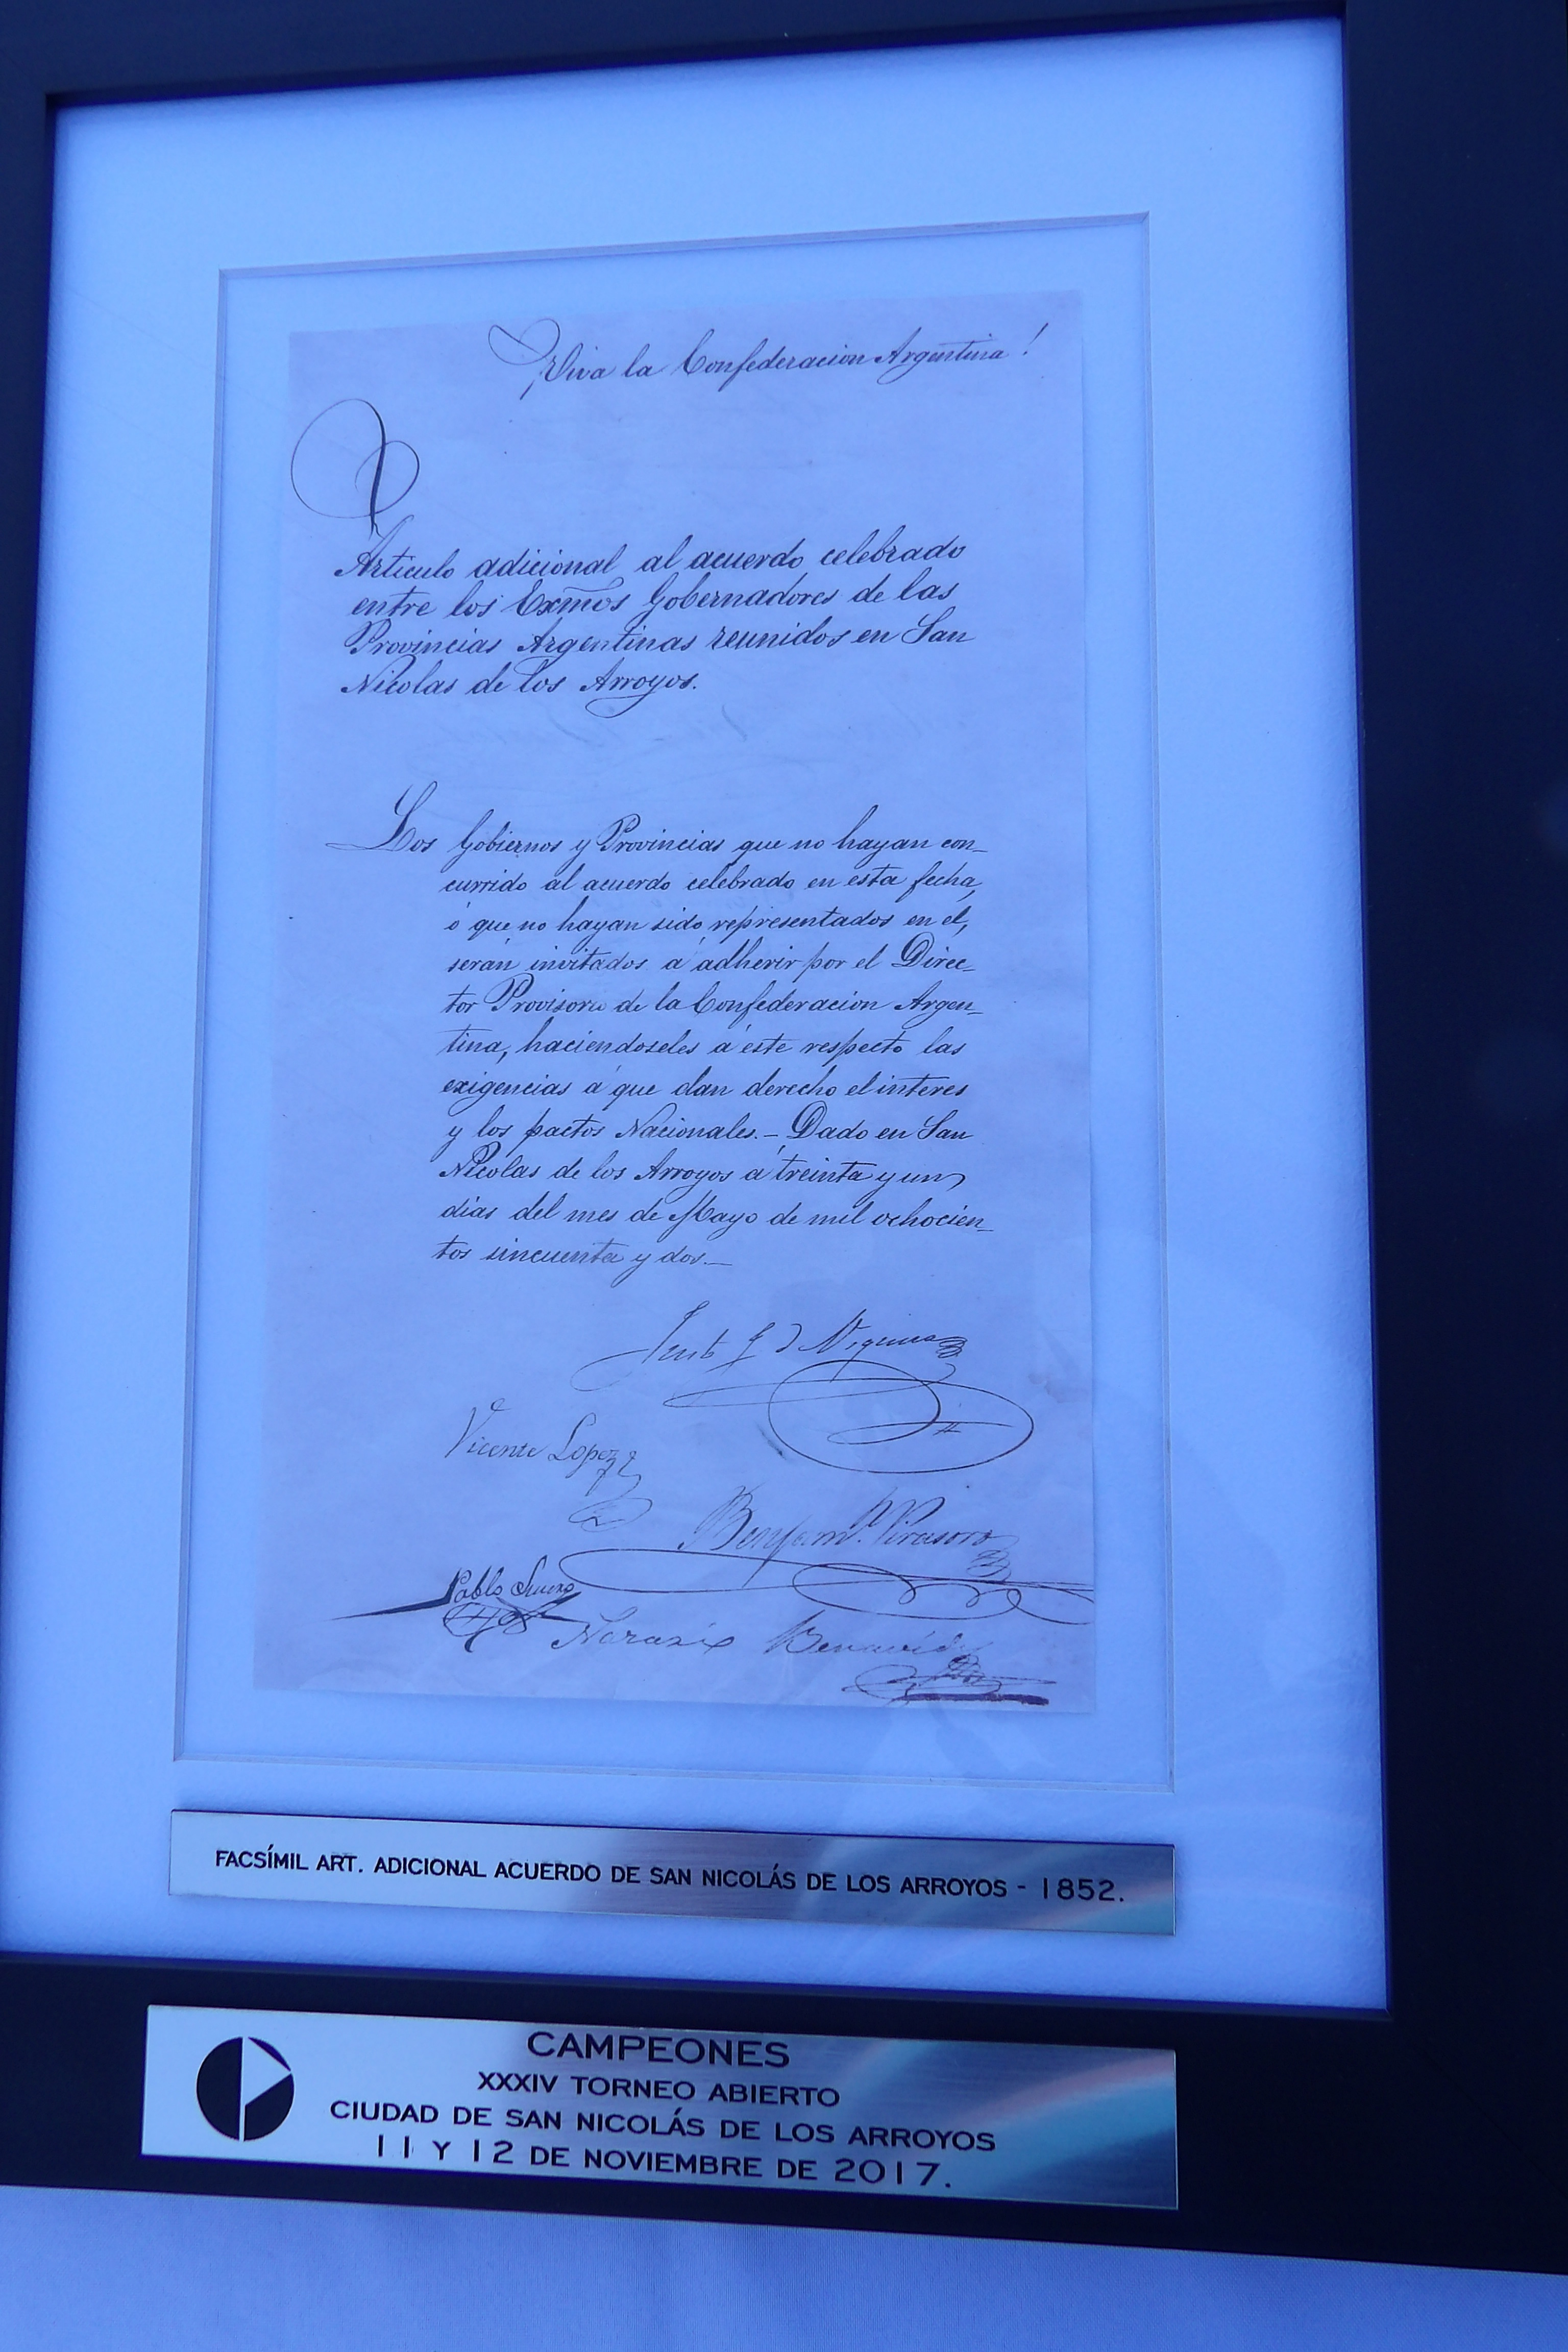 ¡Viva la Confederacion Argentina!
Articulo adicional al acuerdo celebrado
entre los Exmõs Gobernadores de las
Provincias Argentinas reunidos en San
Nicolas de los Arroyos.
Los Gobiernos y Provincias que no hayan con_
currido al acuerdo celebrado en esta fecha,
ó que no hayan sido representados en el,
serán invitados á adherir por el Direc_
tor Provisorio de la Confederacion Argen_
tina, haciendoseles á este respecto las
exigencias á que dan derecho el interes
y los pactos Nacionales.— Dado en San
Nicolas de los Arroyos á treinta y un
dias del mes de Mayo de mil ochocien_
tos sincuenta y dos.—
Justo J d Urquiza
Vicente Lopez
Benjamn. Virasoro
Pablo Lucero
Nazario Benavides
FACSÍMIL ART. ADICIONAL ACUERDO DE SAN NICOLÁS DE LOS ARROYOS - 1852.
CAMPEONES
XXXIV TORNEO ABIERTO
CIUDAD DE SAN NICOLÁS DE LOS ARROYOS
11 Y 12 DE NOVIEMBRE DE 2017.